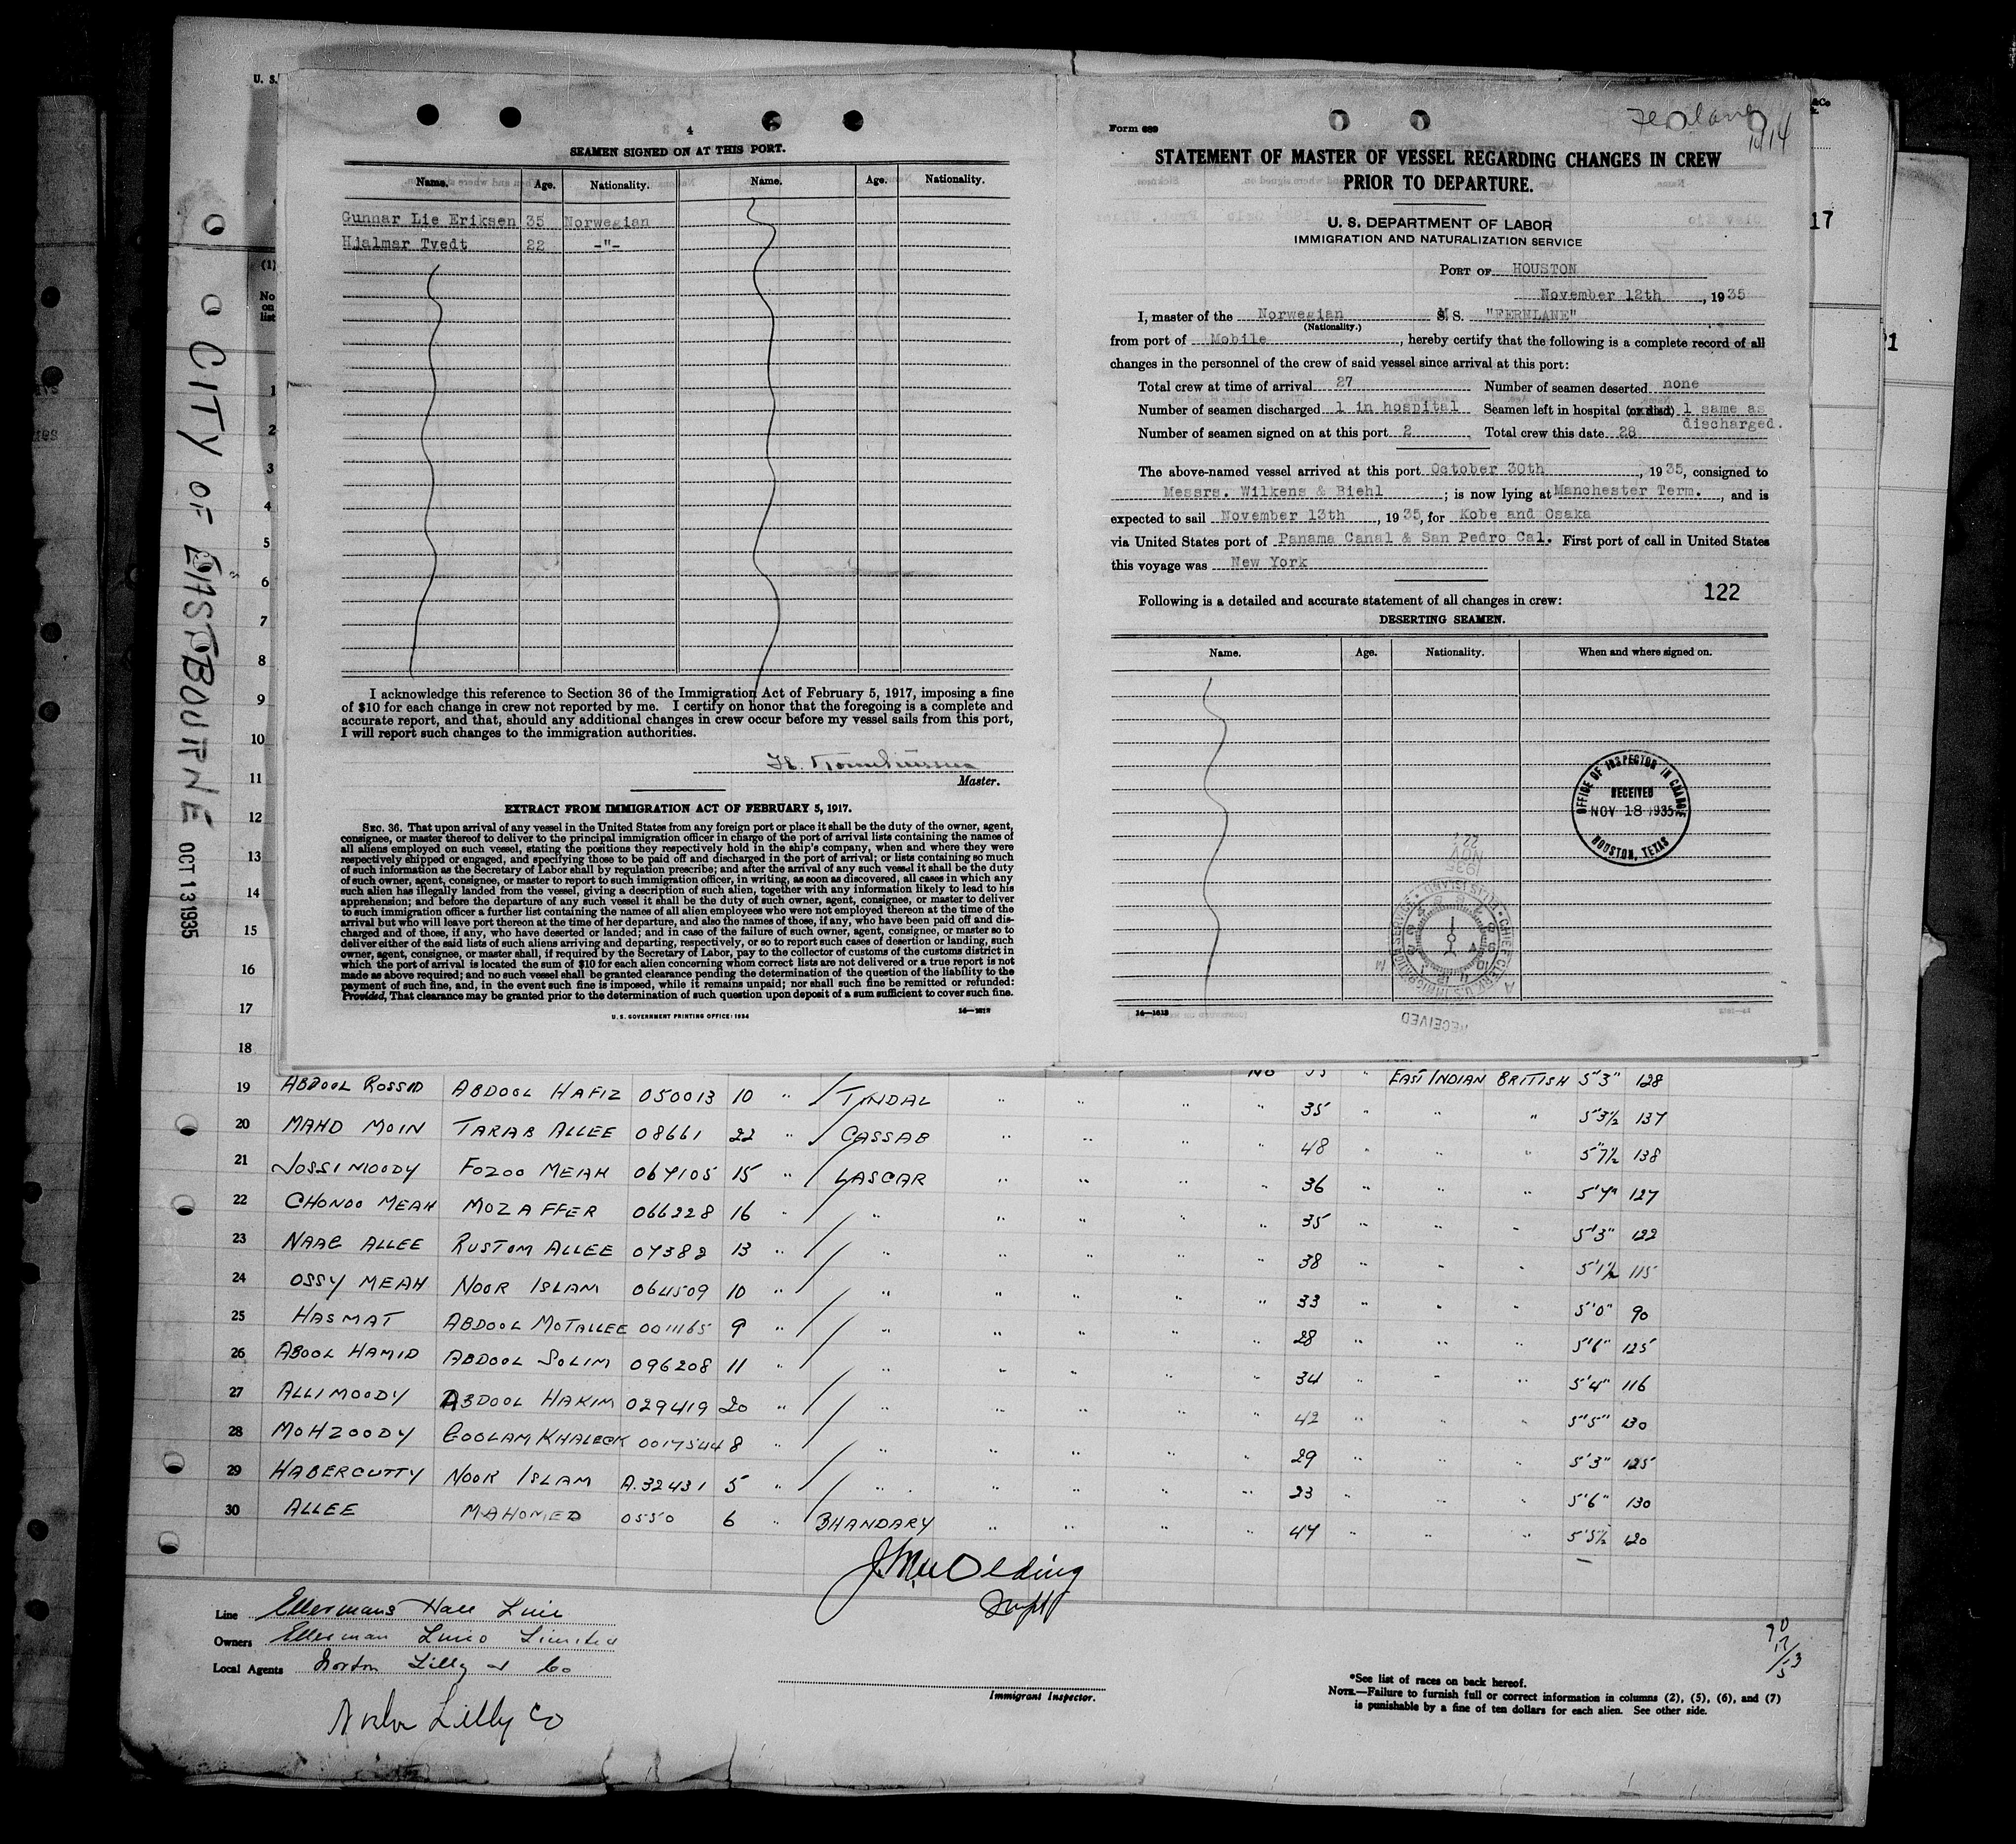 U. S.
4
SEAMEN SIGNED ON AT THIS PORT.
Name. Age. Nationality. Name. Age. Nationality.
Gunnar Lie Eriksen 35 Norwegian
Hjalmar Tvedt 22 -"-
I acknowledge this reference to Section 36 of the Immigration Act of February 5, 1917, imposing a fine
of $10 for each change in crew not reported by me. I certify on honor that the foregoing is a complete and
accurate report, and that, should any additional changes in crew occur before my vessel sails from this port,
I will report such changes to the immigration authorities.
Master.
EXTRACT FROM IMMIGRATION ACT OF FEBRUARY 5, 1917.
SEC. 36. That upon arrival of any vessel in the United States from any foreign port or place it shall be the duty of the owner, agent,
consignee, or master thereof to deliver to the principal immigration officer in charge of the port of arrival lists containing the names of
all aliens employed on such vessel, stating the positions they respectively hold in the ship's company, when and where they were
respectively shipped or engaged, and specifying those to be paid off and discharged in the port of arrival; or lists containing so much
of such information as the Secretary of Labor shall by regulation prescribe; and after the arrival of any such vessel it shall be the duty
of such owner, agent, consignee, or master to report to such immigration officer, in writing, as soon as discovered, all cases in which any
such alien has illegally landed from the vessel, giving a description of such alien, together with any information likely to lead to his
apprehension; and before the departure of any such vessel it shall be the duty of such owner, agent, consignee, or master to deliver
to such immigration officer a further list containing the names of all alien employees who were not employed thereon at the time of the
arrival but who will leave port thereon at the time of her departure, and also the names of those, if any, who have been paid off and dis-
charged and of those, if any, who have deserted or landed; and in case of the failure of such owner, agent, consignee, or master so to
deliver either of the said lists of such aliens arriving and departing, respectively, or so to report such cases of desertion or landing, such
owner, agent, consignee, or master shall, if required by the Secretary of Labor, pay to the collector of customs of the customs district in
which the port of arrival is located the sum of $10 for each alien concerning whom correct lists are not delivered or a true report is not
made as above required; and no such vessel shall be granted clearance pending the determination of the question of the liability to the
payment of such fine, and, in the event such fine is imposed, while it remains unpaid; nor shall such fine be remitted or refunded:
Provided, That clearance may be granted prior to the determination of such question upon deposit of a sum sufficient to cover such fine.
U. S. GOVERNMENT PRINTING OFFICE: 1934 14—1613
Form 689
Fernlane
STATEMENT OF MASTER OF VESSEL REGARDING CHANGES IN CREW
PRIOR TO DEPARTURE.
U. S. DEPARTMENT OF LABOR
IMMIGRATION AND NATURALIZATION SERVICE
PORT OF HOUSTON
November 12th, 1935
I, master of the Norwegian M S. "FERNLANE"
(Nationality.)
from port of Mobile, hereby certify that the following is a complete record of all
changes in the personnel of the crew of said vessel since arrival at this port:
Total crew at time of arrival 27 Number of seamen deserted none
Number of seamen discharged 1 in hospital Seamen left in hospital (or died) 1 same as
discharged.
Number of seamen signed on at this port 2 Total crew this date 28
The above-named vessel arrived at this port October 30th, 1935, consigned to
Messrs. Wilkens & Biehl; is now lying at Manchester Term., and is
expected to sail November 13th, 1935, for Kobe and Osaka
via United States port of Panama Canal & San Pedro Cal. First port of call in United States
this voyage was New York
122
Following is a detailed and accurate statement of all changes in crew:
DESERTING SEAMEN.
Name. Age. Nationality. When and where signed on.
OFFICE OF INSPECTOR IN CHARGE
RECEIVED
NOV 18 1935
HOUSTON, TEXAS
1935
NOV
22
CHIEF CLERK U.S. IMMIGRATION SERVICE · ELLIS ISLAND
RECEIVED
14—1613
&Co
17
21
(1)
No
on
list
CITY OF EASTBOURNE OCT 13 1935
1
2
3
4
5
6
7
8
9
10
11
12
13
14
15
16
17
18
19 ABDOOL ROSSID ABDOOL HAFIZ 050013 10 " TINDAL " " " NO 35 " EAST INDIAN BRITISH 5'3" 128
20 MAHD MOIN TARAB ALLEE 08661 22 " CASSAB " " " " 35 " " " 5'3½ 137
21 JOSSIMOODY FOZOO MEAH 067105 15 " LASCAR " " " " 48 " " " 5'7½ 138
22 CHONOO MEAH MOZAFFER 066228 16 " " " " " " 36 " " " 5'4" 127
23 NAAB ALLEE RUSTOM ALLEE 07382 13 " " " " " " 35 " " " 5'3" 122
24 OSSY MEAH NOOR ISLAM 064509 10 " " " " " " 38 " " " 5'1½ 115
25 HASMAT ABDOOL MOTALLEE 001165 9 " " " " " " 33 " " " 5'0" 90
26 ABOOL HAMID ABDOOL SOLIM 096208 11 " " " " " " 28 " " " 5'6" 125
27 ALLIMOODY ABDOOL HAKIM 029419 20 " " " " " " 34 " " " 5'4" 116
28 MOHZOODY GOOLAM KHALECK 0017544 8 " " " " " " 42 " " " 5'5" 130
29 HABERCUTTY NOOR ISLAM A.32431 5 " " " " " " 29 " " " 5'3" 125
30 ALLEE MAHOMED 0550 6 " BHANDARY " " " " 23 " " " 5'6" 130
47 " " " 5'5½ 120
Line Ellermans Hall Line
Owners Ellerman Lines Limited
Local Agents Norton Lilly & Co
Norton Lilly Co
Immigrant Inspector.
*See list of races on back hereof.
NOTE.—Failure to furnish full or correct information in columns (2), (5), (6), and (7)
is punishable by a fine of ten dollars for each alien. See other side.